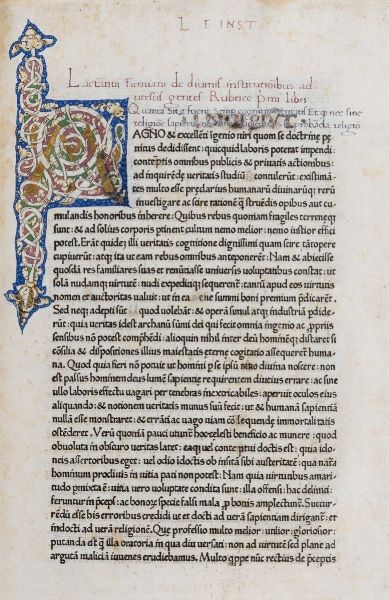 L. F. INST
Lactantii Firmiani de diuinis institutionibus ad
uersus gentes Rubrice primi libri
religio
AGNO & excellēti īgenio uiri quom se doctrinę pe
nitus dedidissent: quicquid laboris poterat impendi:
contēptis omnibus publicis & priuatis actionibus:
ad inquirēdę ueritatis studiū contulerūt: existimā
tes multo esse pręclarius humanarū diuinarūq; rerū
inuestigare ac scire rationē q̄ struēdis opibus aut cu
mulandis honoribus inhęrere: Quibus rebus quoniam fragiles terreneq;
sunt: & ad solius corporis ptinent cultum nemo melior: nemo iustior effici
potest. Erāt quidē illi ueritatis cognitione dignissimi quam scire tātopere
cupiuerūt: atq; ita ut eam rebus omnibus anteponerēt. Nam & abiecisse
quosdā res familiares suas et renūtiasse uniuersis uoluptatibus constat: ut
solā nudamq; uirtutē: nudi expeditiq; sequerenť: tantū apud eos uirtutis
nomen et auctoritas ualuit: ut in ea esse summi boni premium p̄dicarēt.
Sed neq; adepti sūt quod uolebāt: & operā simul atq; industriā pdide
rūt: quia ueritas idest archanū sūmi dei qui fecit omnia ingenio ac ppriis
sensibus nō potest comp̄hēdi: alioquin nihil inter deū hominēq; distaret si
cōsilia & dispositiones illius maiestatis eternę cogitatio assequeret humā
na. Quod quia fieri nō potuit ut homini p se ipsū ratio diuina noscere: non
est passus hominem deus lumē sapientię requirentem diutius errare: ac sine
ullo laboris effectu uagari per tenebras inextricabiles: aperuit oculos eius
aliquando: & notionem ueritatis munus suū fecit: ut & humanā sapientiā
nullā esse monstraret: & errāti ac uago uiam cōsequendę immortalitatis
ostēderet. Verū quoniā pauci utunť hoc celesti beneficio ac munere: quod
obuoluta in obscuro ueritas latet: eaq; uel contēptui doctis est: quia ido
neis assertoribus eget: uel odio idoctis ob insitā sibi austeritatē: quā natā
hominum procliuis in uitia pati non potest: Nam quia uirtutibus amari
tudo pmixta ē: uitia uero uoluptate condita sunt: illa offensi: hac deliniti
feruntur in p̄ceps: ac bonorū specie falsi mala p bonis amplectunť. Succur
rēdū esse his erroribus credidi ut et docti ad uerā sapientiam dirigant: et
indocti ad uerā religionē. Quę professio multo melior: utilior: gloriosior
putanda est q̄ illa oratoria in qua diu uersati non ad uirtutē sed plane ad
argutā maliciā iuuenes erudiebamus. Multo q̄ppe nūc rectius de p̄ceptis